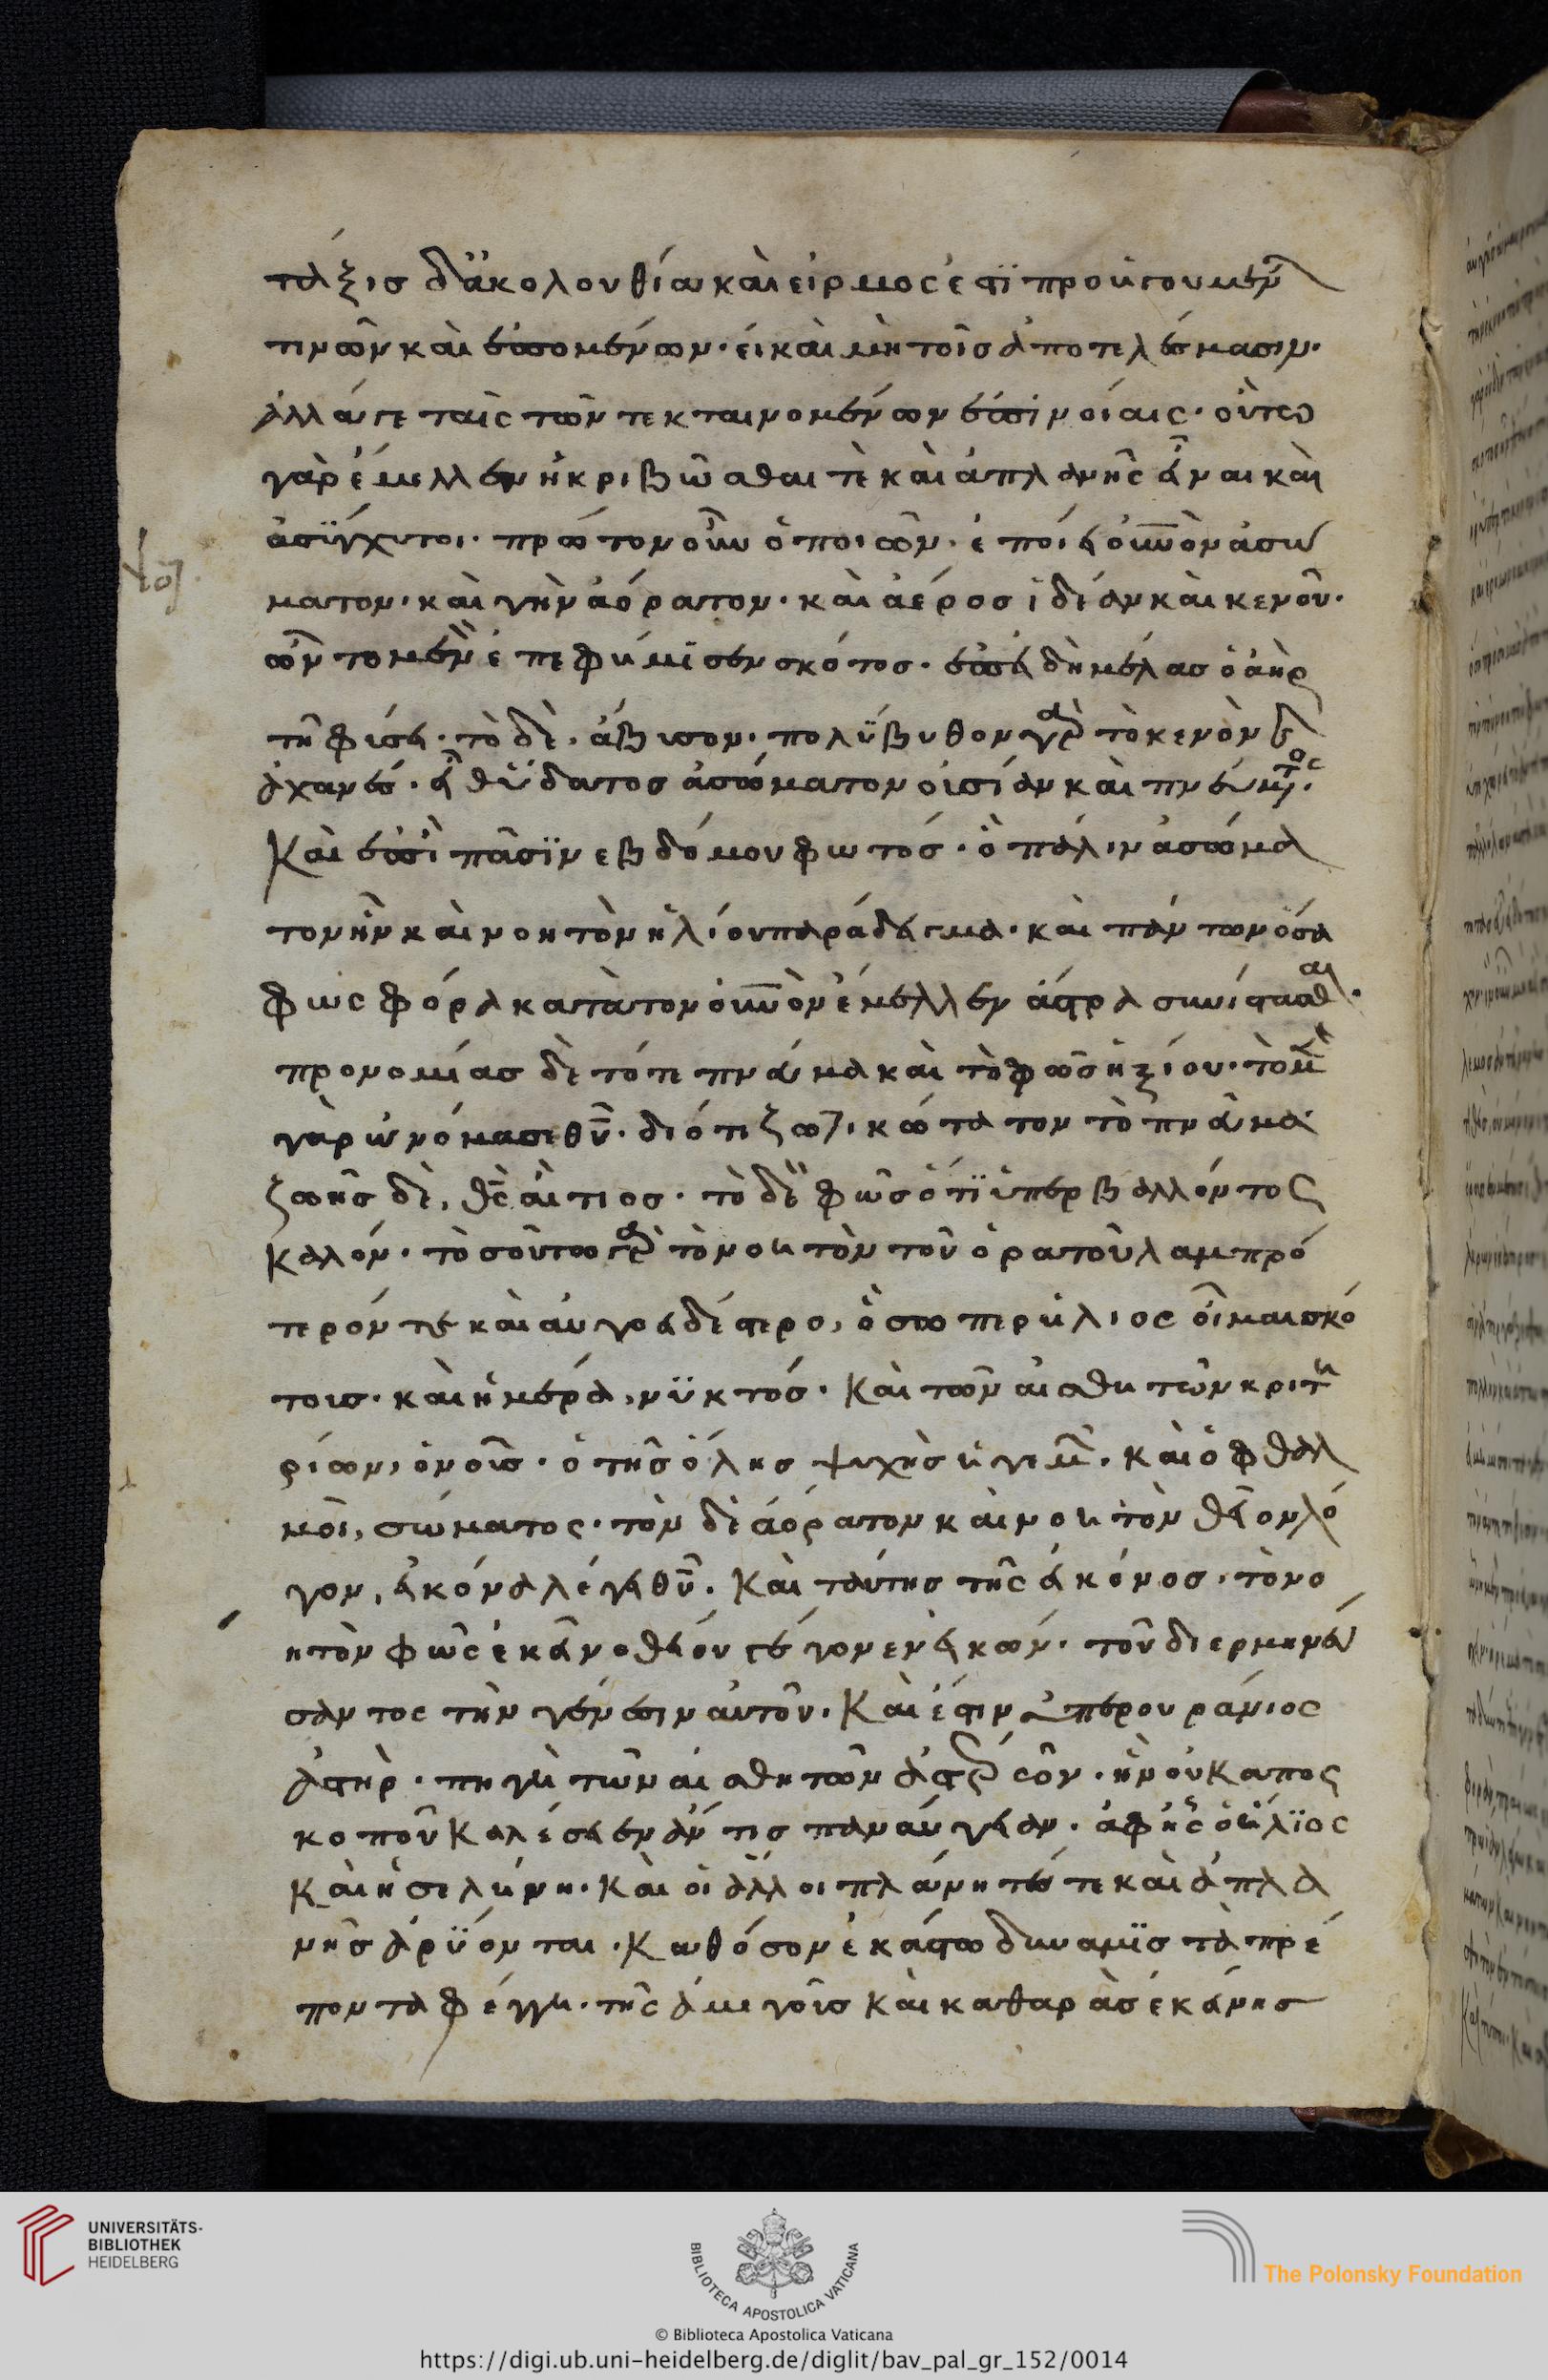 τάξισ δ' ἀκολουθία καὶ εἱρμός ἐστϊ προηγουμέν
τινων καὶ ἑπομένων· εἰ καὶ μὴ τοῖσ ἀποτελέσμασιν·
ἀλλά γε ταῖς τῶν τεκταινομένων ἐπινοίαις· οὕτω
γὰρ ἔμελλεν ἠκριβῶσθαι τὲ καὶ ἀπλανῆς εἶναι καὶ
ἀσύγχυτοι· πρῶτον οὖν ὁ ποιῶν· ἐποίει οὐνὸν ἀσώ
ματον· καὶ γῆν ἀόρατον· καὶ ἀέροσ ἰδέαν καὶ κενοῦ·
ὧν τὸ μὲν ἐπεφήμϊσεν σκότοσ· ἐπεὶ δὴ μέλασ ὁ ἀὴρ
τῆ φύσει· τὸ δὲ, ἄβυσσον· πολύβυθον γὰρ τὸ κενὸν
ἀχανέσ· εἶθ' ὕδατοσ ἀσώματον οὐσίαν καὶ πνεύματος·
Καὶ ἐπὶ πᾶσϊν ἑβδόμου φωτόσ· ὃ πάλιν ἀσώμα
τον ἦν καὶ νοητὸν ἡλίου παράδειγμα· καὶ πάντων ὅσα
φωςφόρα κατὰ τὸν οὐνὸν ἔμελλεν ἄστρα συνίστασθαι·
προνομίασ δὲ τό τε πνεῦμα καὶ τὸ φῶσ ἠξίου· τὸ μὲν
γὰρ ὠνόμασε θῦ· διότι ζωτικώτατον τὸ πνεῦμα·
ζωῆσ δὲ, θς αἴτιοσ· τὸ δὲ φῶσ ὅτϊ ὑπερβαλλόντος
καλόν· τοσούτω γὰρ τὸ νοητὸν τοῦ ὁρατοῦ λαμπρό
τερόν τε καὶ αὐγοειδέστερο, ὅσω περ ἥλιος οἶμαι σκό
τουσ· καὶ ἡμέρα, νϋκτόσ· Καὶ τῶν αἰσθητῶν κριτη
ρίων, ὁ νοῦσ· ὁ τῆσ ὅλησ ψυχῆσ ἡγεμ· καὶ ὀφθαλ
μοὶ, σώματος· τὸν δὲ ἀόρατον καὶ νοητὸν θεῖον λό
γον, εἰκόνα λέγει θῦ. Καὶ ταύτησ τῆς εἰκόνοσ, τὸ νο
ητὸν φῶς ἐκεῖνο θείου γέγονεν εἰκών· τοῦ διερμηνεύ
σαντος τὴν γένεσιν αὐτοῦ. Καὶ ἔστιν ὑπερουράνιος
ἀστὴρ· πηγὴ τῶν αἰσθητῶν ἀστέρων· ἣν οὐκ ἀπὸς
κοποῦ καλέσειεν ἄν τισ παναύγειαν· ἀφ' ἧς ὁ ἥλϊος
καὶ ἡ σελήνη· καὶ οἱ ἄλλοι πλάνητέσ τε καὶ ἀπλα
νῆσ ἀρϋόνται· Καθόσον ἑκάστω δύναμϊσ τὰ πρέ
ποντα φέγγη· τῆς ἀμιγοῦσ καὶ καθαρᾶσ ἐκείνησ
UNIVERSITÄTS-
BIBLIOTHEK
HEIDELBERG
BIBLIOTECA APOSTOLICA VATICANA
The Polonsky Foundation
© Biblioteca Apostolica Vaticana
https://digi.ub.uni-heidelberg.de/diglit/bav_pal_gr_152/0014